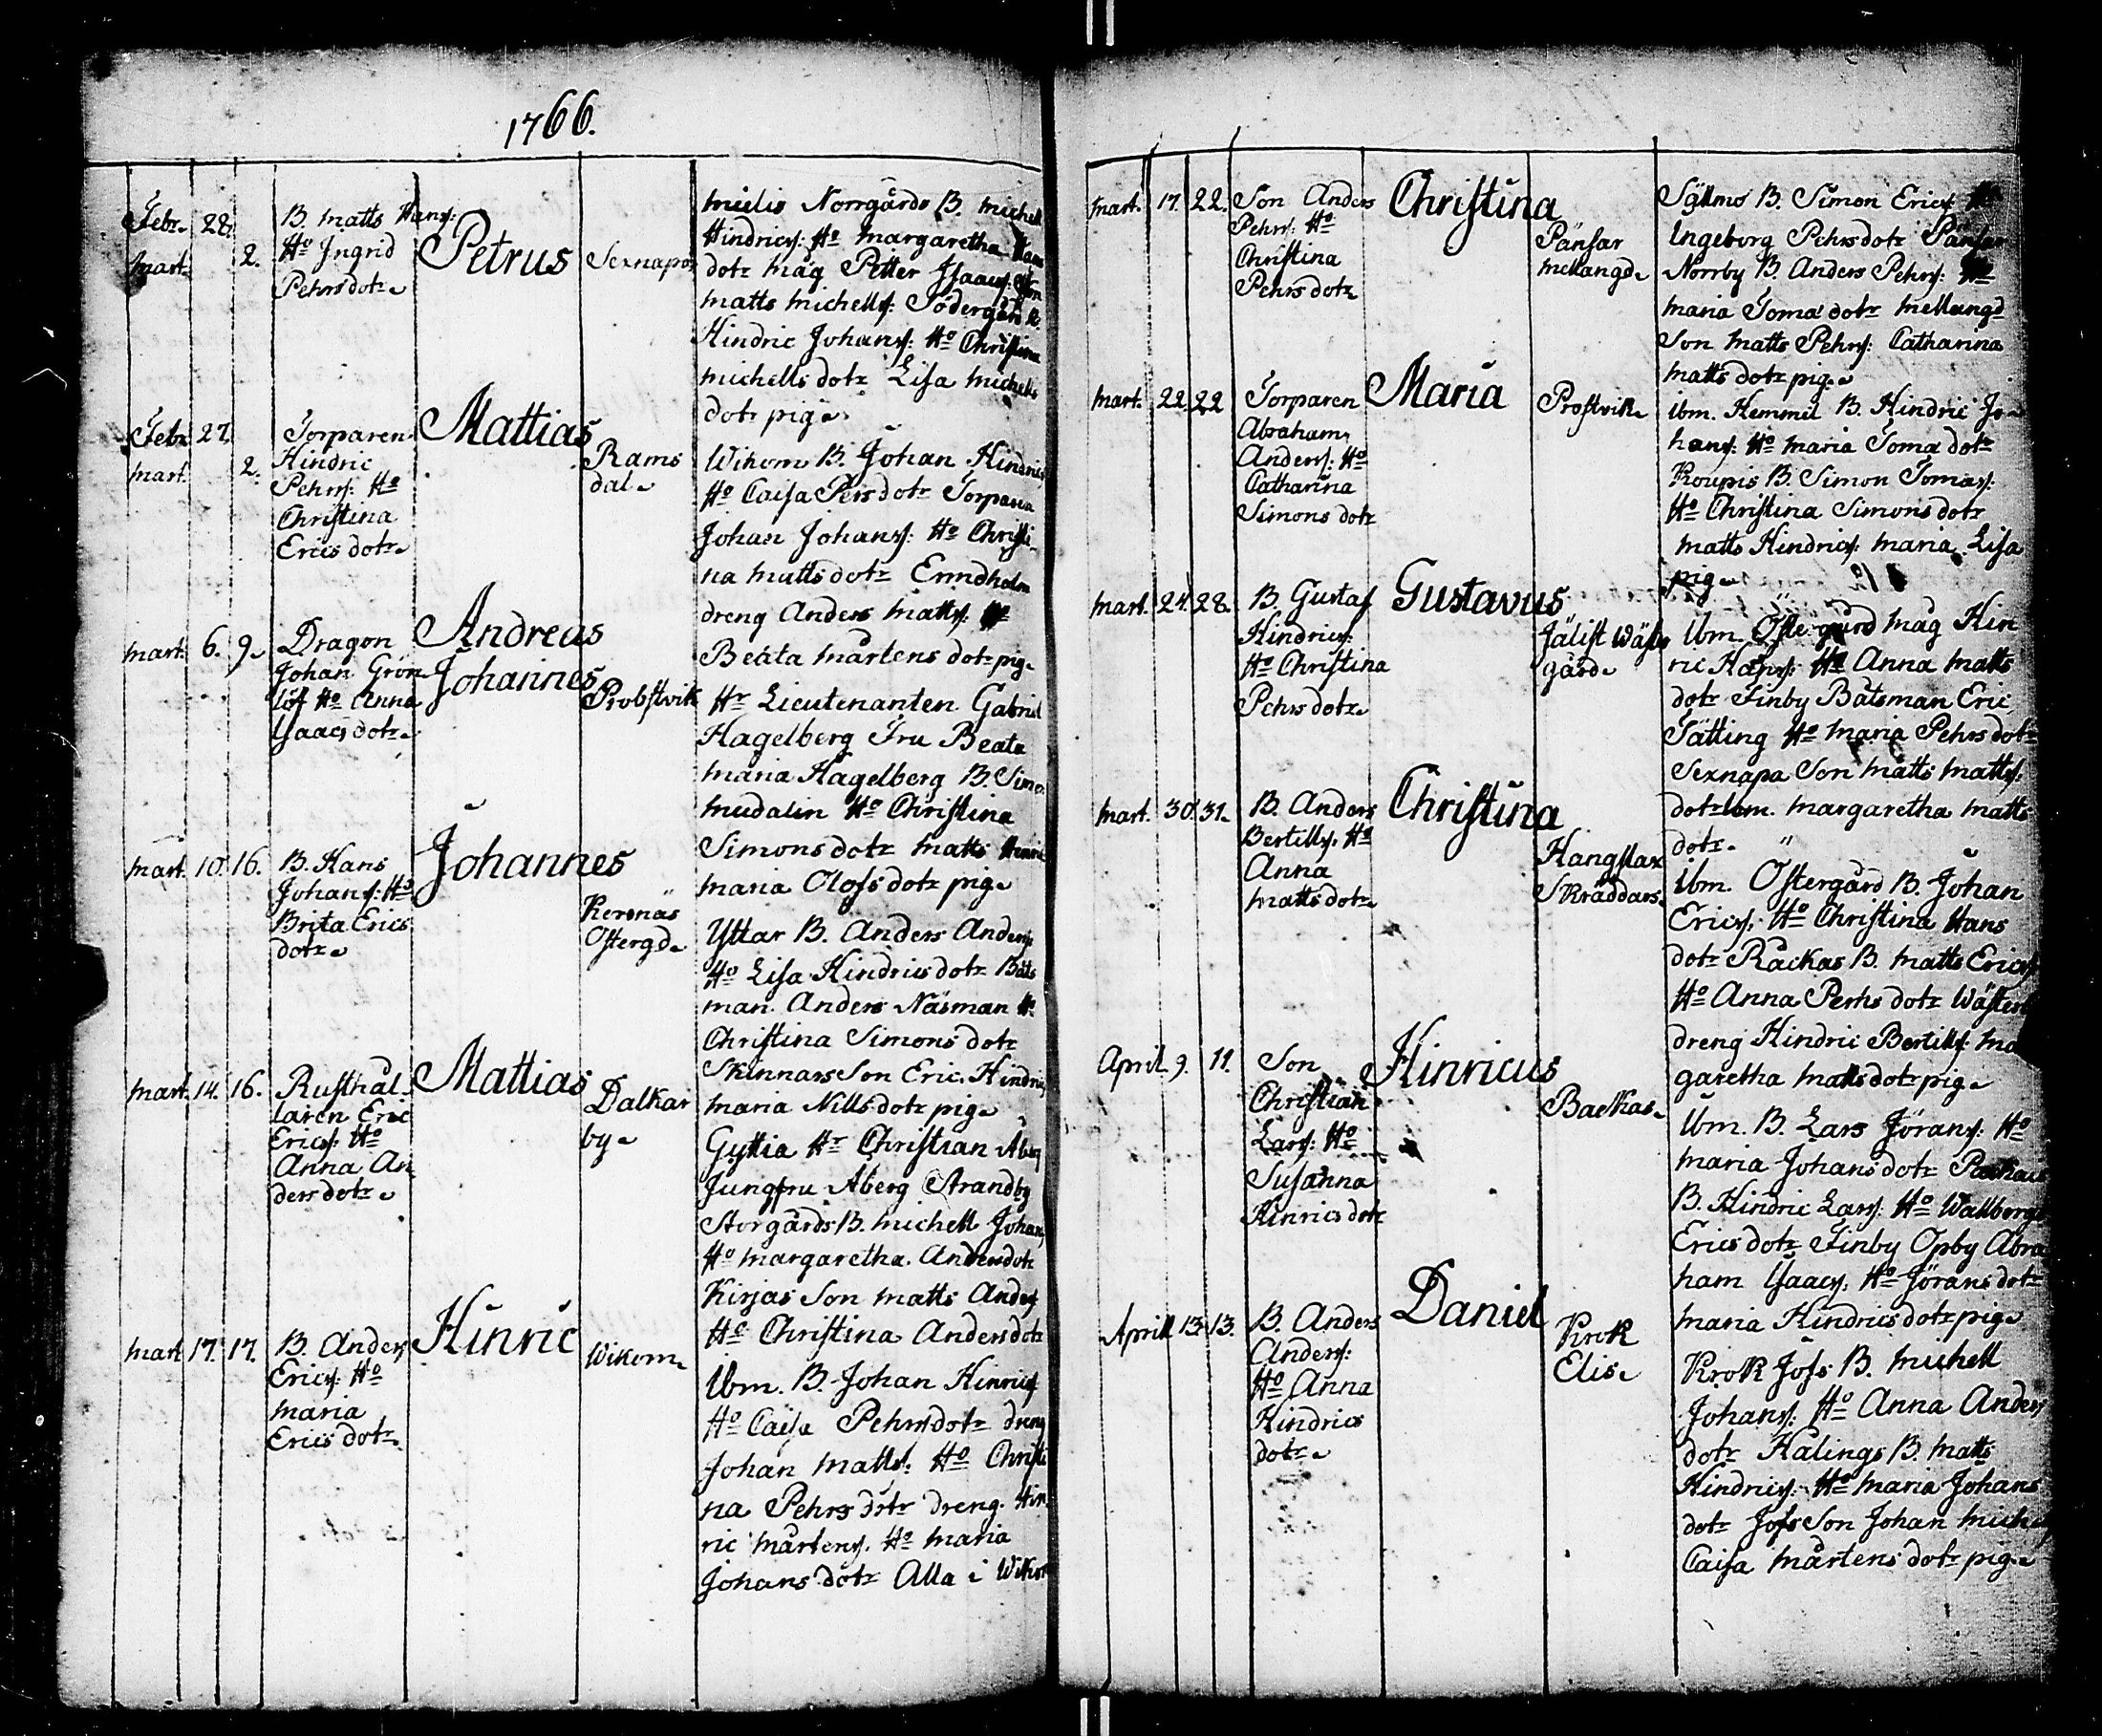 1766.
Febr. 28.
Mart. 2.
B. Matts Hansſ:
Ho Ingrid
Pehrs dotr
Petrus
Sexnapor
Mielis Norrgårds B. Michel
Hindricsſ: Ho Margaretha
dotr mag Petter Iſaacsſ:
Matts Michellsſ: Södergård
Hindric Johansſ: Ho Christina
Michells dotr Lisa Michels
dotr pig.
Febr 27.
Mart. 2.
Torparen
Hindric
Pehrsſ: Ho
Christina
Erics dotr
Mattias
Rams
dal
Wikom B. Johan Hindrics
Ho Caisa Pers dotr Torparen
Johan Johansſ: Ho Christi
na Matts dotr Enndholm
dreng Anders Mattsſ:
Beata Mårtens dotr pig
Mart. 6. 9.
Dragon
Johan Grön
löf Ho Anna
Iſaacs dotr
Andreas
Johannes
Probstvik
Hr Lieutenanten Gabriel
Hagelberg Fru Beata
Maria Hagelberg B. Simon
Mudalin Ho Christina
Simons dotr Matts Henric
Maria Olofs dotr pig
Mart. 10. 16.
B. Hans
Johansſ: Ho
Brita Erics
dotr
Johannes
Kersnäs
Ostergd
Yttar B. Anders Andersſ
Ho Lisa Hindrics dotr Båts
man Anders Näsman Ho
Christina Simons dotr
Skinnars Son Eric Hindric
Maria Nills dotr pig
Mart. 14. 16.
Rusthål
laren Eric
Ericsſ: Ho
Anna An
ders dotr
Mattias
Dalkar
by
Gyttia Hr Christian Åberg
Jungfru Åberg Strandby
Storgårds B. Michell Johansſ
Ho Margaretha Anders dotr
Kirjas Son Matts Andersſ
Ho Christina Anders dotr
Mart 17. 17.
B. Anders
Ericsſ: Ho
Maria
Erics dotr
Hinric
Wikom
Ibm. B. Johan Hinricsſ
Ho Caisa Pehrs dotr dreng
Johan Mattsſ: Ho Christi
na Pehrs dotr dreng Hin
ric Mårtensſ. Ho Maria
Johans dotr Alla i Wikom
Mart. 17. 22.
Son Anders
Pehrsſ: Ho
Christina
Pehrs dotr
Christina
Pänsar
Mellangd
Syllmo B. Simon Ericsſ Ho
Ingeborg Pehrs dotr Pänsar
Norrby B. Anders Pehrsſ: Ho
Maria Toma dotr Mellangd
Son Matts Pehrsſ: Catharina
Matts dotr pig
Mart. 22. 22
Torparen
Abraham
Andersſ: Ho
Catharina
Simons dotr
Maria
Prostvik
ibm. Hemmil B. Hindric Jo
hansſ: Ho Maria Toma dotr
Koupis B. Simon Tomasſ:
Ho Christina Simons dotr
Matts Hindricsſ: Maria Lisa
pig
Mart. 24. 28.
B. Gustaf
Hindricsſ:
Ho Christina
Pehrs dotr
Gustavus
Jälist Wäster
gård
Ibm. Öster gård mag Hin
ric Hansſ: Ho Anna Matts
dotr Finby Båtsman Eric
Tätting Ho Maria Pehrs dotr
Sexnapa Son Matts Mattsſ:
dotr Ibm. Margaretha Matts
dotr "
Mart. 30. 31.
B. Anders
Bertillsſ. Ho
Anna
Matts dotr
Christina
Hangslax
Skräddars
Ibm. Ostergård B. Johan
Ericsſ: Ho Christina Hans
dotr Rackas B. Matts Ericsſ
Ho Anna Perhs dotr Wäster
dreng Hindric Bertillsſ: Ma
garetha Matts dotr pig
April 9. 11.
Son
Christian
Larsſ: Ho
Susanna
Hinrics dotr
Hinricus
Backas
Ibm. B. Lars Jöransſ: Ho
Maria Johans dotr
B. Hindric Larsſ: Ho Wallborg
Erics dotr Finby Opby Abra
ham Iſaacsſ. Ho Jörans dotr
Maria Hindrics dotr pig
Aprill 13. 13.
B. Anders
Andersſ:
Ho Anna
Hindrics
dotr
Daniel
Krok
Elis
Krok Jofs B. Michell
Johansſ: Ho Anna Anders
dotr Kalings B. Matts
Hindricsſ. Ho Maria Johans
dotr Jofs Son Johan Michelsſ
Caisa Mårtens dotr pig